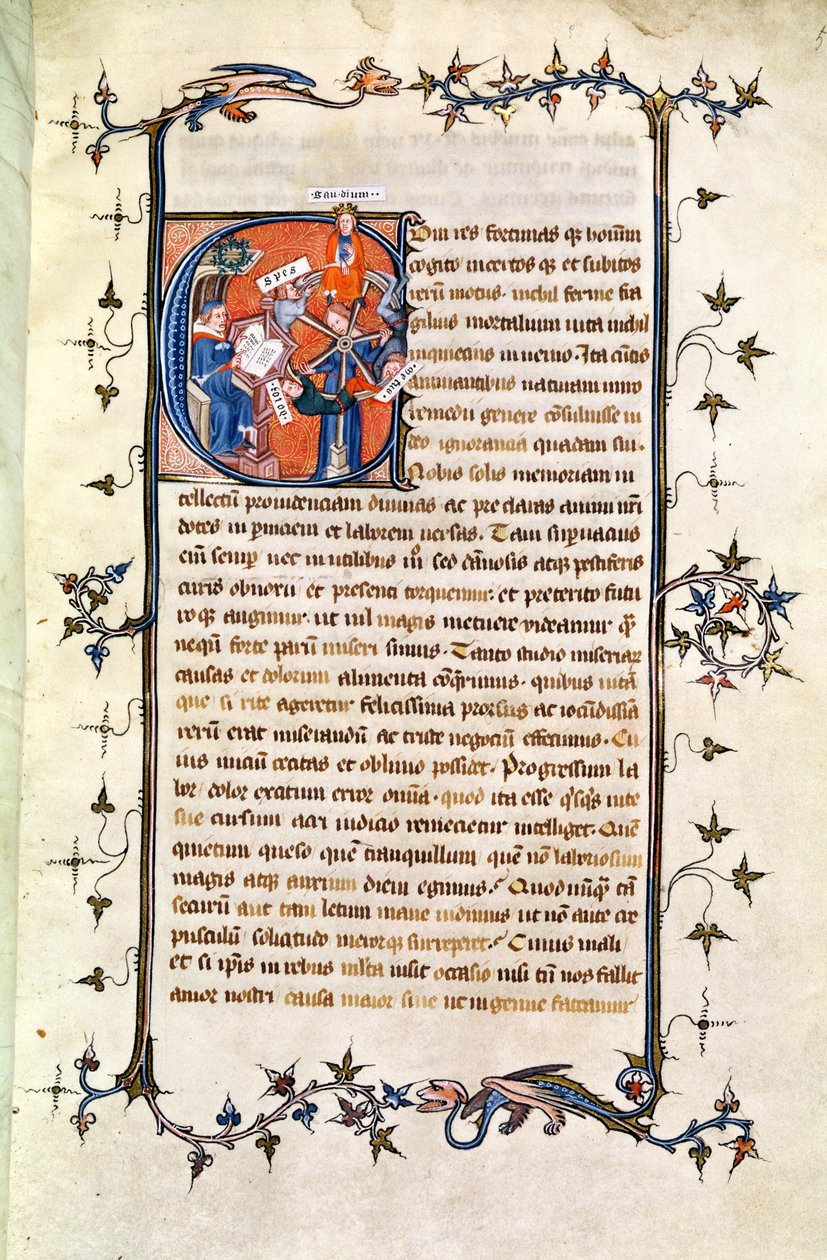 5
·gaudium··
spes
dolor
metus
Cum res fortunas qȝ hominū
cogito incertos qȝ et subitos
rerū motus. nichil ferme fra
gilius mortalium uita nichil
inquietius inuenio. Ita cūctis
animantibus naturam miro
remedii genere cōsuluisse ui
deo ignorancia quadam sui.
Nobis solis memoriam in
tellectū prouidenciam diuinas ac preclaras animi nr̄i
dotes in p̄niciem et laborem uersas. Tam supuacuis
eim̄ semp nec inutilibus mo sed dānosis atqȝ pestiferis
curis obnoxii et presenti torquemur. et preterito futu
ro qȝ angimur. ut nil magis metuere uideamur qȝ
nequn̄ forte parum miseri simus. Tanto studio miseriarȝ
causas et dolorum alimenta cōqrimus. quibus uitā
que si rite ageretur felicissima prorsus ac iocūdissīa
rerū erat miserandum ac triste negociū effecimus. Cu
ius inicium cecitas et obliuio possidet. Progressum la
bor dolor exitum error omīa. quod ita esse qsqs uite
sue cursum acri iudicio remecietur intelliget. Quē
quietum queso quē tranquillum quē nō laboriosum
magis atqȝ anxium diem egimus. Quod unqȝ tā
securū aut tam letum mane uidimus ut nō ante cre
pusculū solicitudo merorqȝ surreperet. Cuius mali
et si ipis in rebus mlta uisit occasio nisi tn̄ nos fallit
amor nostri causa maior siue ut ingenue fateamur